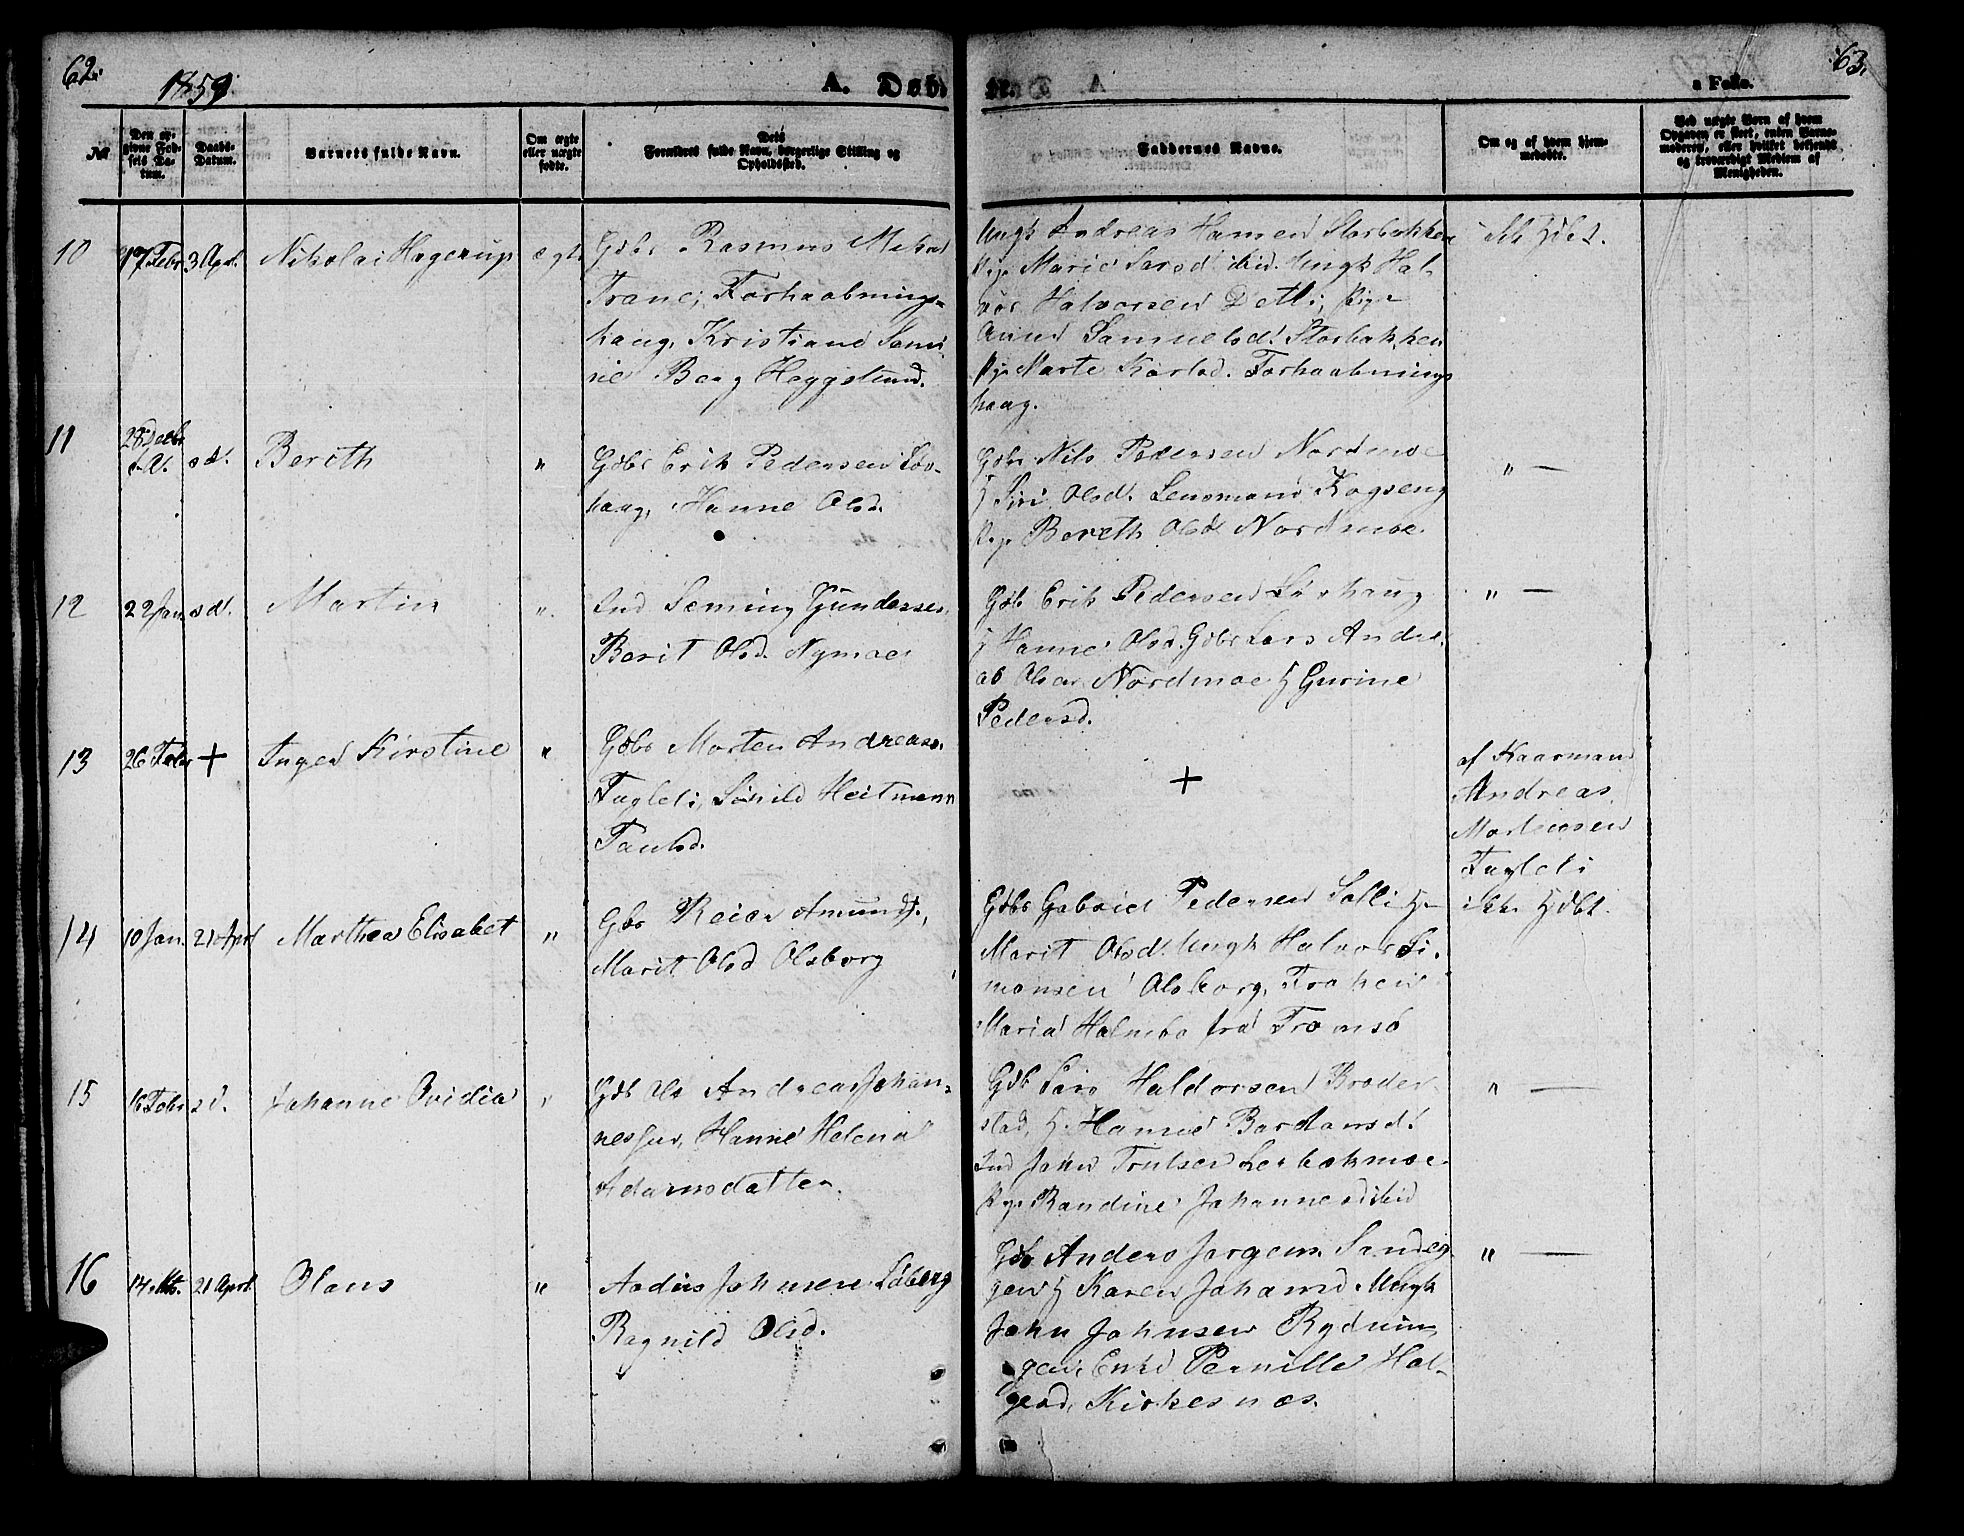 62.
1859
A. Døb
№
Den op-
givne Fød-
sels Da-
tum.
Daabs-
Datum.
Barnets fulde Navn.
Om ægte
eller uægte
fødte.
Dets
Forældres fulde Navn, borgerlige Stilling og
Opholdssted.
10
17 Febr
3 Apr.
Nikolai Hagerup
ægt.
Gdbr Rasmus
Trane, Forhaabnings-
haug, Kristiane
Berg Heggelund.
11
28 Decbr
f.A.
sd.
Bereth
"
Gdbr Erik Pedersen Løv-
haug, Hanne Olsd.
12
22 Jan.
sd.
Martin
"
Ind Seming Gundersen,
Berit Olsd. Nymoe
13
26 Febr
+
Inger Kirstine
"
Gdbr Morten Andreass.
Fugleli, Heitmann
Paulsd.
14
10 Jan.
21 April
Marthea Elisabet
"
Gbr Reier Amunds.,
Marit Olsd Olsborg
15
16 Febr
sd.
Johanne Ovidia
"
Gdb Andreas Johan-
nessen, Hanne Helena
Adamsdatter.
16
14 Mts.
21 April
Olaus
"
Johnsen
Ragnild Olsd.
63.
e Fødte.
Faddernes Navne.
Om og af hvem hjem-
medøbte.
Ved uægte Børn af hvem
Opgaven er skeet, enten Barne-
moderen, eller hvilket bekjendt
og troværdigt Medlem af
Menigheden.
Ungk Andreas Hansen Storbakken
Pige Marie Larsd ibid. Ungk Hal-
vor Halvorsen Detli, Pige
Anne Samuelsd. Storbakken
Pige Marte Karlsd. Forhaabnings
haug.
ikke Hjdbt.
Gdbr Nils Pedersen Nordmoe
H Siri Olsd. Lensmand Kogseng
Pige Bereth Olsd Nordmoe.
" —
Gdb Erik Pedersen Løvhaug
H Hanne Olsd. Gdbr Lars Andre-
as Olsen Nordmoe H Gurine
Pedersd.
" —
+
af Kaarmand
Andreas
Mortensen
Fugleli
Gdbr Gabriel Pedersen Solli H
Marit Olsd. Ungk Halvor Si-
monsen Olsborg, Frøken
Maria Holmbo fra Tromsö
ikke Hjdbt.
Gdb Lars Haldorsen Broder-
stad, H. Hanne Bardonsd.
Ind John Trulsen Lerbækmoe.
Pige Randine Johannesd ibid
" —
Gdb Anders Jørgens. Sandeg-
gen H Karen Johansd Ungk
John Johnsen Rydnin-
gen, Enke Pernille Hal-
gersd, Kirkesnæs.
" —